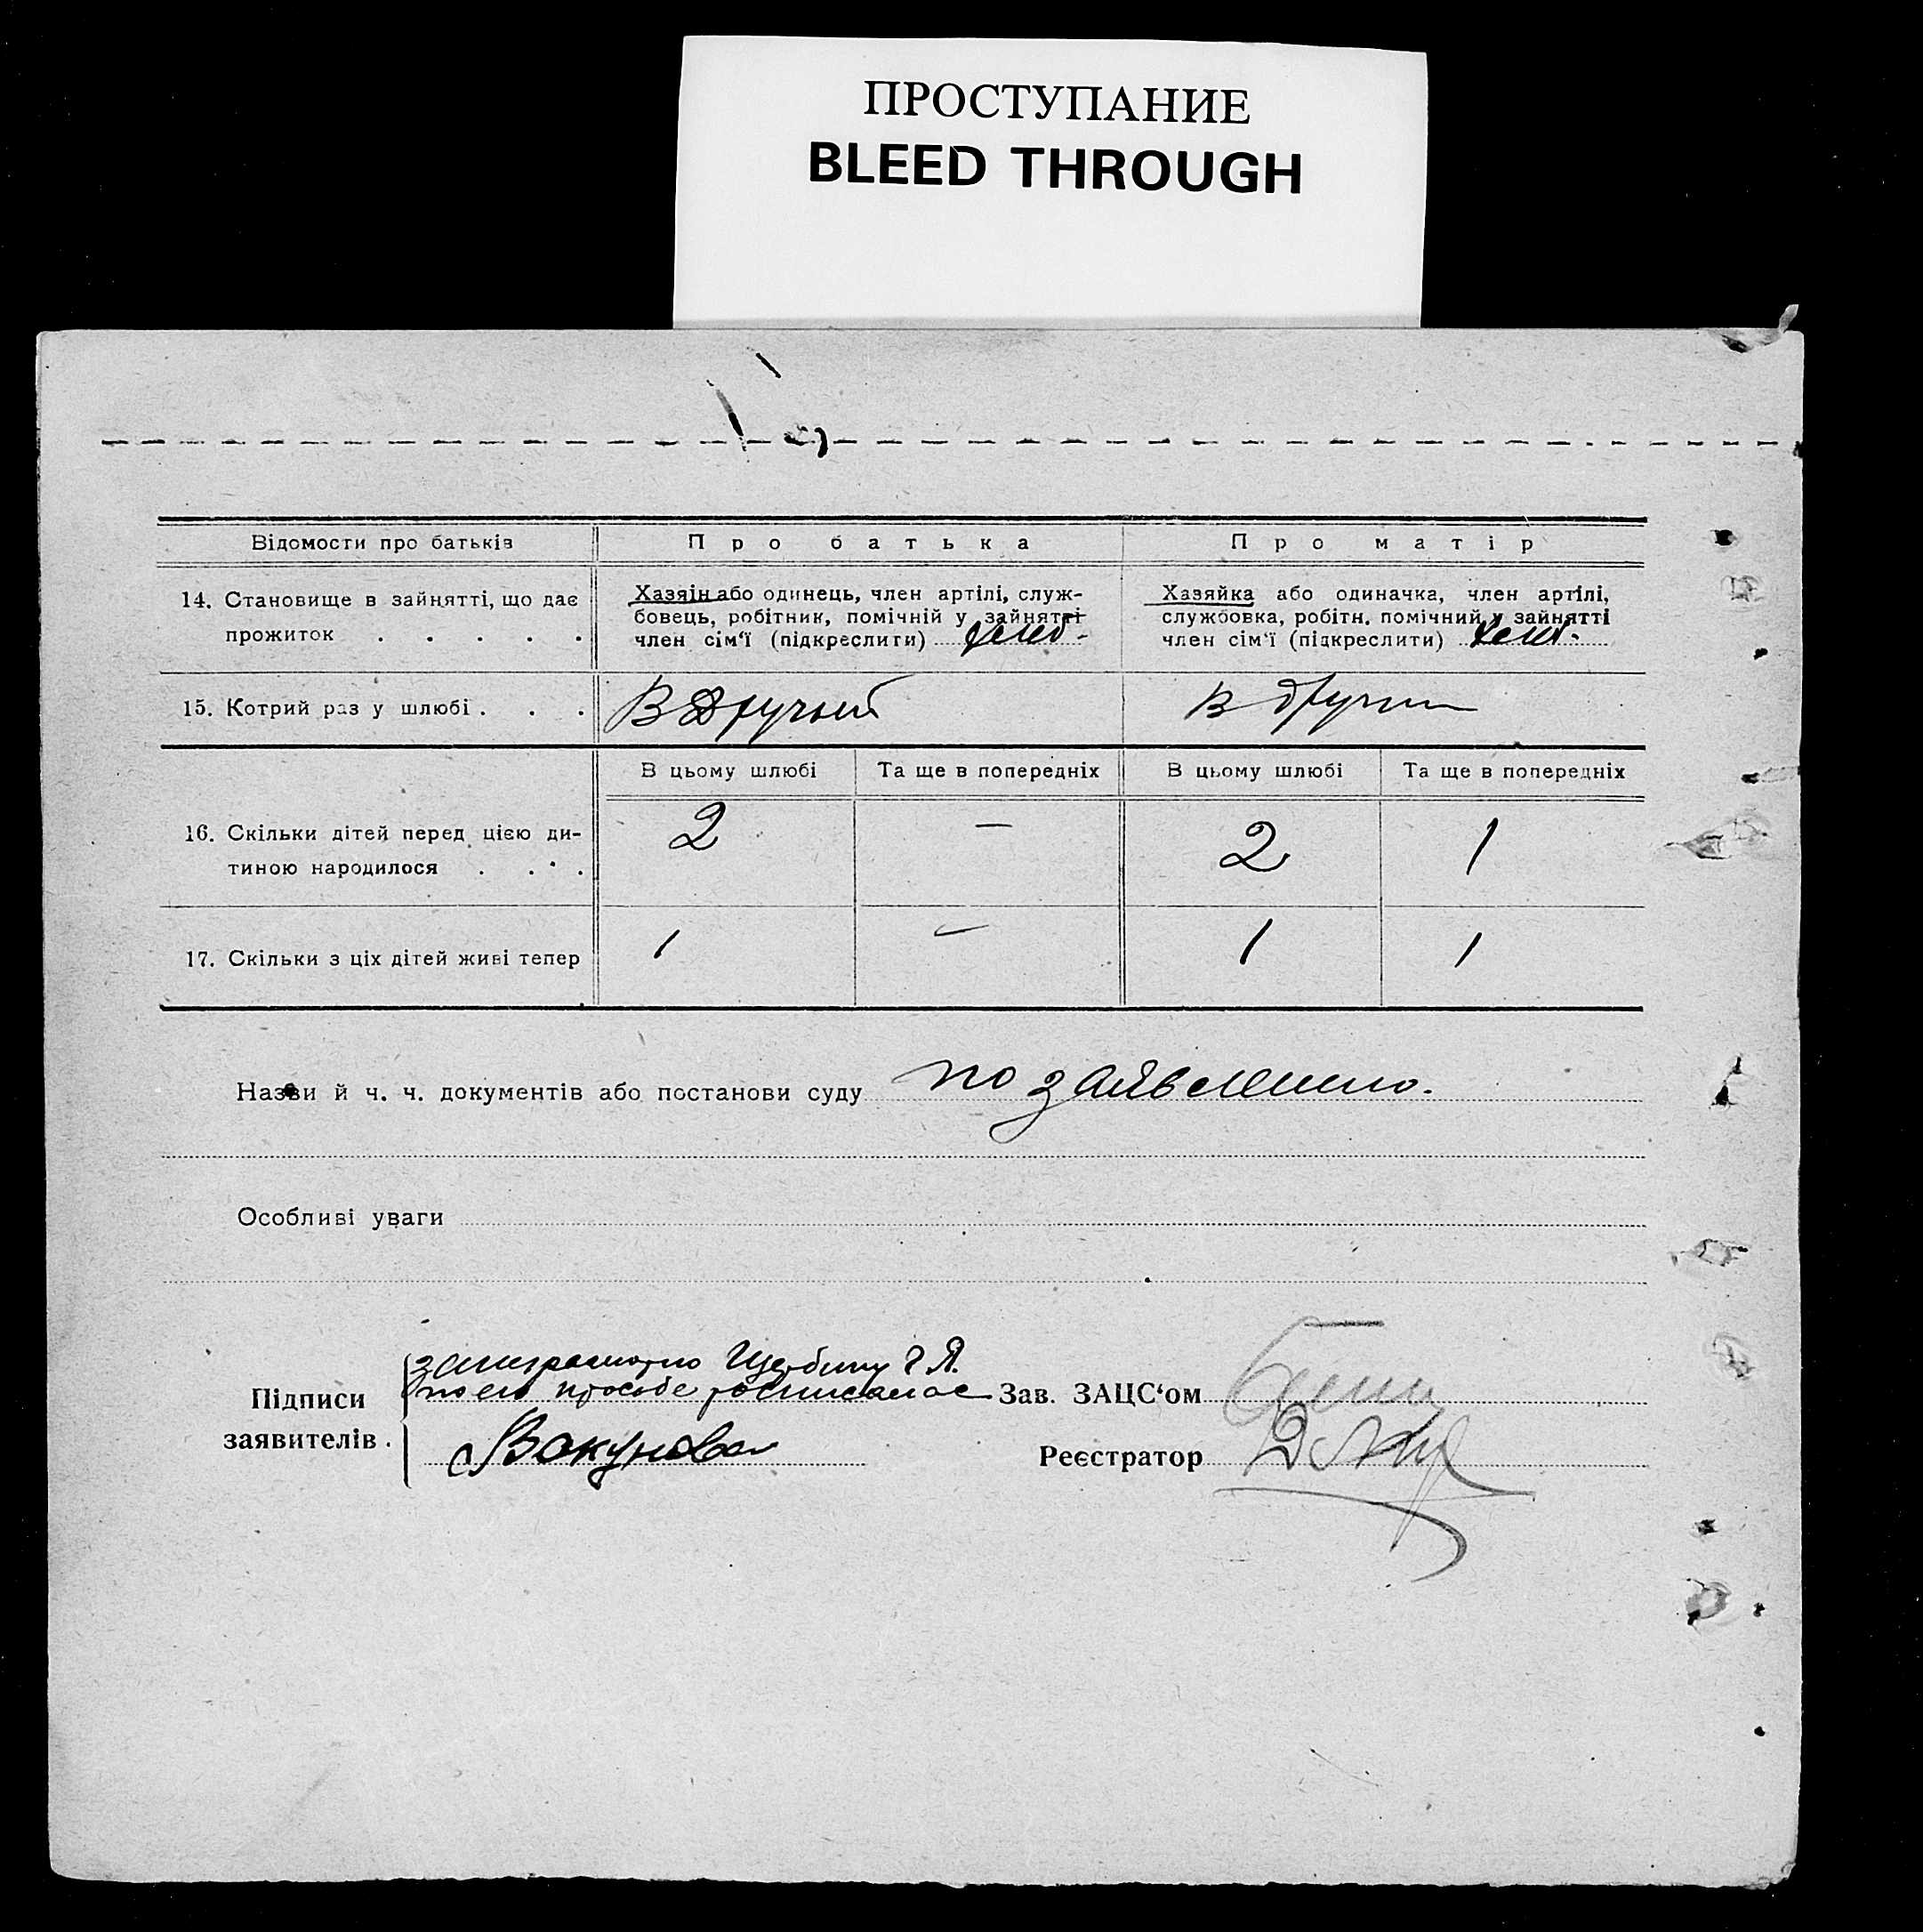 ПРОСТУПАНИЕ
BLEED THROUGH
Відомости про батьків
Про батька
Про матір
14. Становище в зайнятті, що дає
прожиток . . . . .
Хазяін або одинець, член артілі, служ-
бовець, робітник, помічній у зайнятті
член сім'ї (підкреслити)
Хазяйка або одиначка, член артілі,
службовка, робітн. помічний у зайнятті
член сім'ї (підкреслити)
15. Котрий раз у шлюбі . . .
В другий
В цьому шлюбі
Та ще в попередніх
В цьому шлюбі
Та ще в попередніх
16. Скільки дітей перед цією ди-
тиною народилося . . .
2 — 2 1
17. Скільки з ціх дітей живі тепер
1 — 1 1
Назви й ч. ч. документів або постанови суду по заявлению.
Особливі уваги
Підписи
заявителів.
Щербину Г Я.
по его прозбе росписалас
Вакунова
Зав. ЗАЦС'ом
Реєстратор